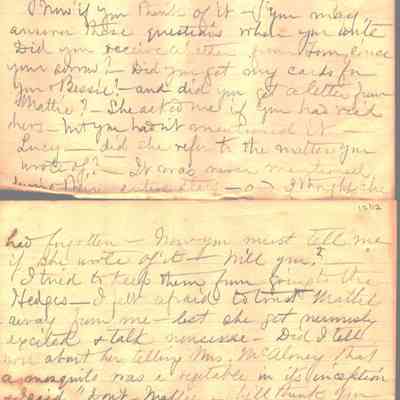 Now if you think of it - (you may)
answer these questions when you write
Did you receive letter from Tom, since
your sorrow? - Did you get my cards for
you & Bessie? - and did you get a letter from
Mattie? - She asked me if you had rec'd
hers - but you hadn't mentioned it -
Lucy - did she refer to the matter you
wrote of? - It was never mentioned
entire stay - I thought she
12/12
had forgotten - Now you must tell me
if she wrote of it - Will you?
I tried to keep them from going to the
Hedges - I felt afraid to trust Mattie
away from me - lest she get nervously
excited & talk nonsense - Did I tell
you about her telling Mrs. McAloney that
a mosquito was a vegetable in its inception
I said, "Don't - Mattie - will think you